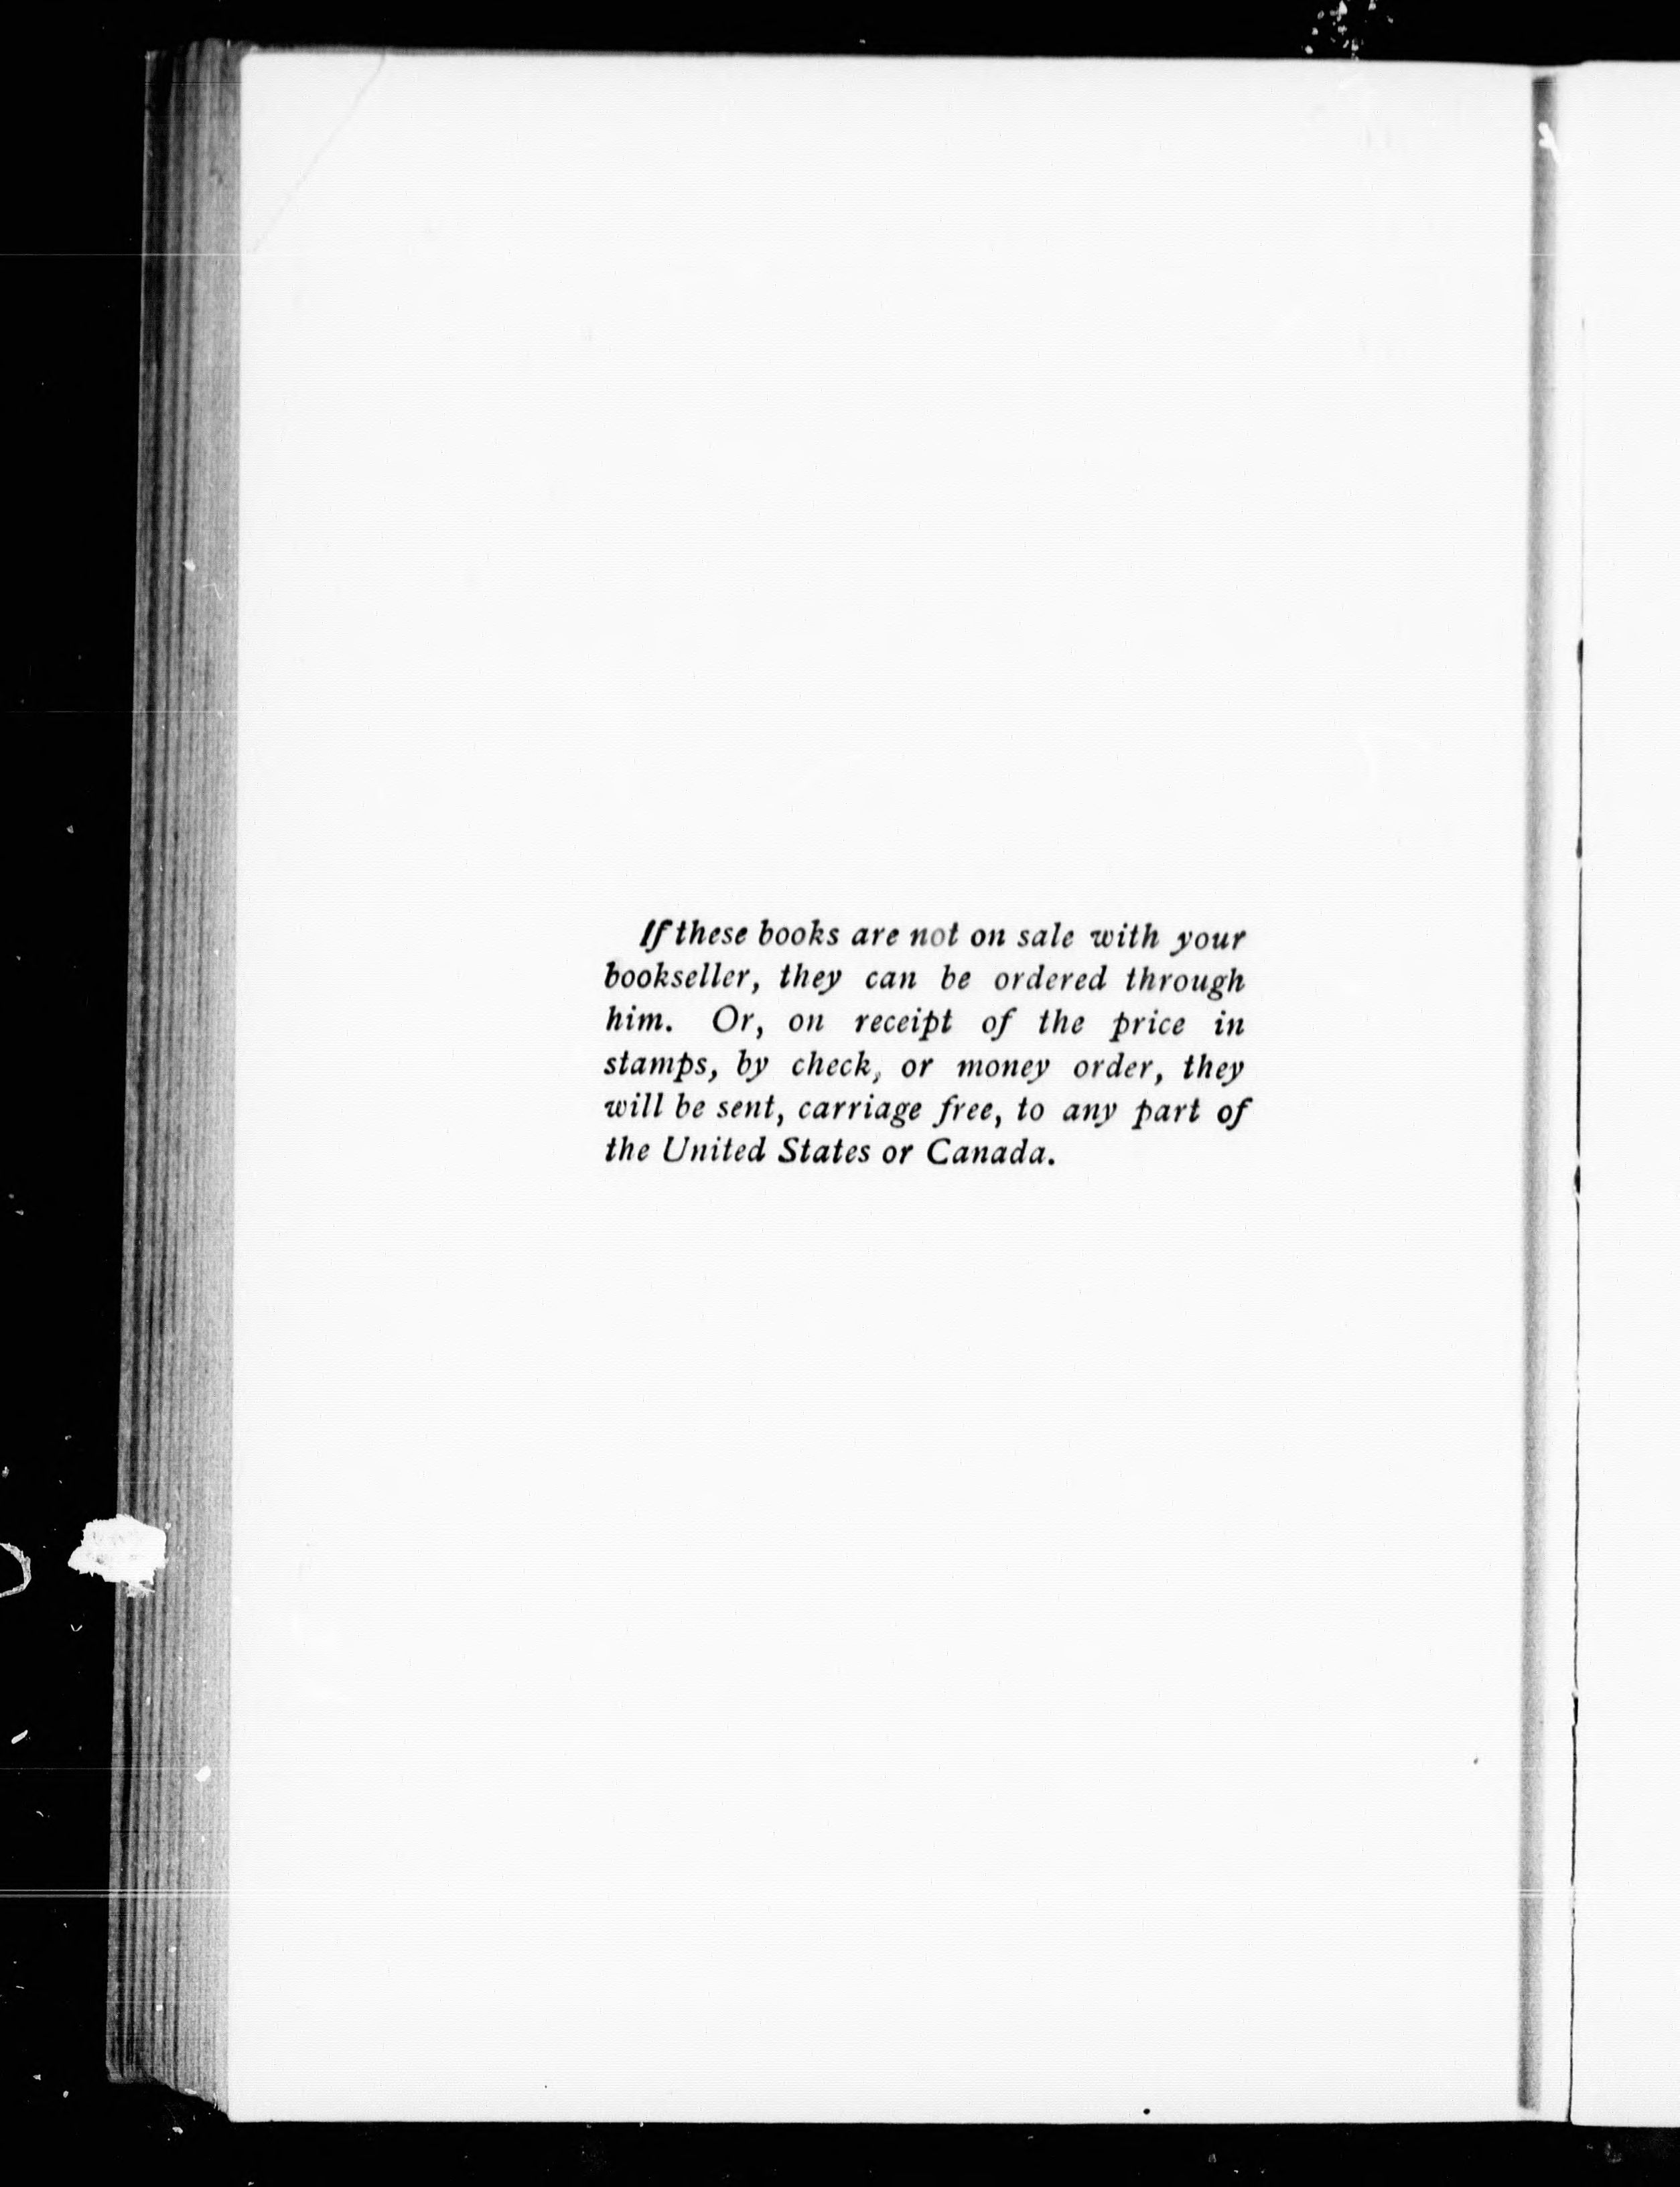 If these books are not on sale with your
bookseller, they can be ordered through
him. Or, on receipt of the price in
stamps, by check, or money order, they
will be sent, carriage free, to any part of
the United States or Canada.